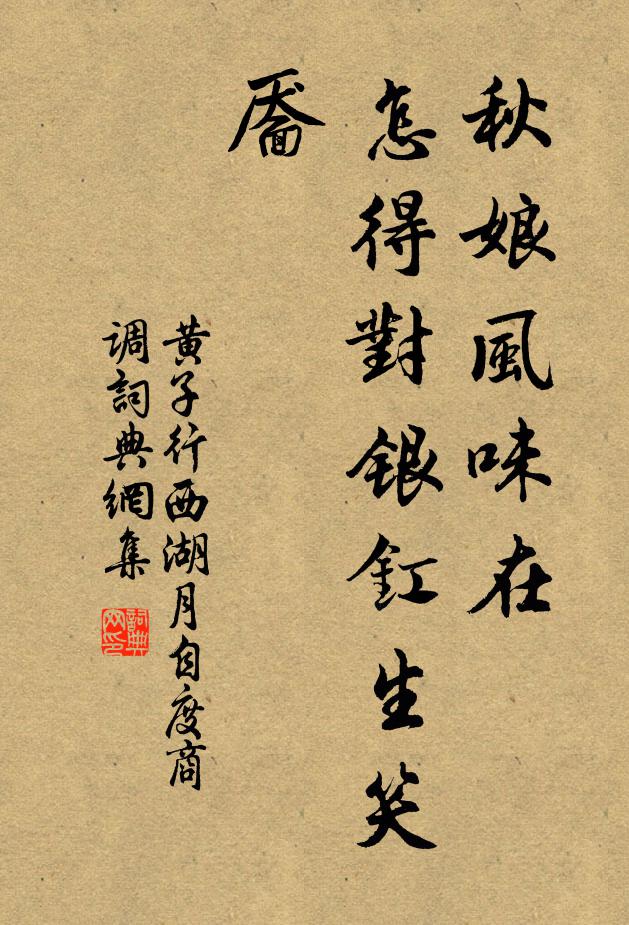 秋娘風味在
怎得對銀釭生笑
靨
黄子行西湖月自度商
调詞典網集
詞典
网印